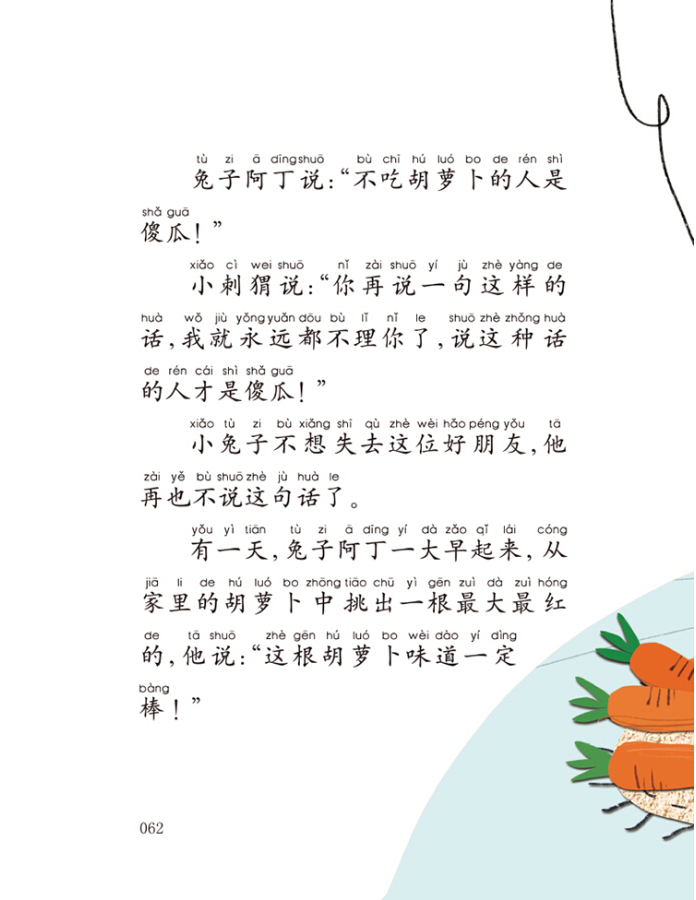 tù zi ā dīng shuō bù chī hú luó bo de rén shì
兔子阿丁说：“不吃胡萝卜的人是
shǎ guā
傻瓜！”
xiǎo cì wei shuō nǐ zài shuō yí jù zhè yàng de
小刺猬说：“你再说一句这样的
huà wǒ jiù yǒng yuǎn dōu bù lǐ nǐ le shuō zhè zhǒng huà
话，我就永远都不理你了，说这种话
de rén cái shì shǎ guā
的人才是傻瓜！”
xiǎo tù zi bù xiǎng shī qù zhè wèi hǎo péng yǒu tā
小兔子不想失去这位好朋友，他
zài yě bù shuō zhè jù huà le
再也不说这句话了。
yǒu yì tiān tù zi ā dīng yí dà zǎo qǐ lái cóng
有一天，兔子阿丁一大早起来，从
jiā li de hú luó bo zhōng tiāo chū yì gēn zuì dà zuì hóng
家里的胡萝卜中挑出一根最大最红
de tā shuō zhè gēn hú luó bo wèi dào yí dìng
的，他说：“这根胡萝卜味道一定
bàng
棒！”
062